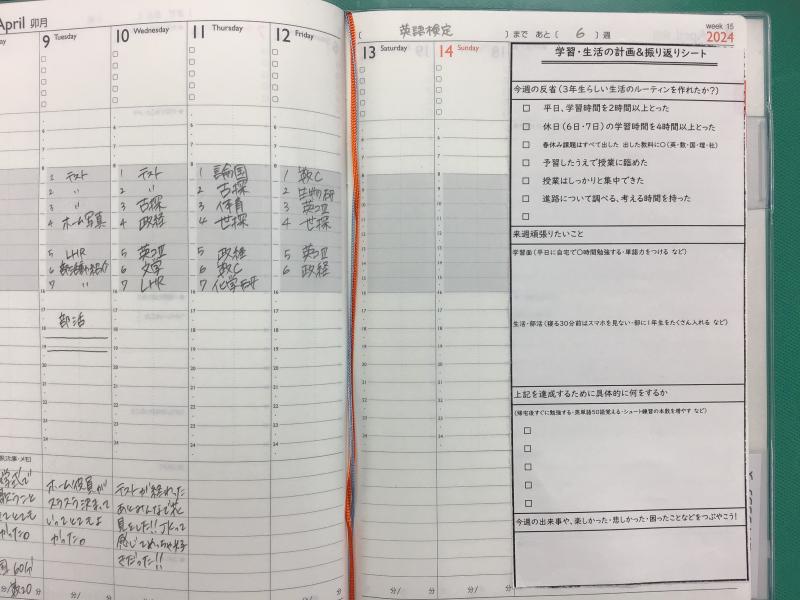 April 卯月
9 Tuesday
10 Wednesday
11 Thursday
12 Friday
1 テスト
2 〃
3 〃
4 ホーム写真
5 LHR
6
7 〃
部活
1 テスト
2 〃
3 古探
4 政経
5 英コⅢ
6 文学
7 LHR
1 論国
2 古探
3 体育
4 世探
5 政経
6 数C
7 化学
1 数C
2 生物
3 英コⅢ
4 世探
5 英コⅢ
6 政経
ホーム役員が
スラスラ決まって
いってとてもよ
かった。
テストが終わった
あとみんなで花
見をした!!JKって
感じてめっちゃ好
きだった!!
分/数20
[ 英語検定 ]まで あと( 6 )週
week 15
2024
13 Saturday
14 Sunday
学習・生活の計画&振り返りシート
今週の反省(3年生らしい生活のルーティンを作れたか?)
□ 平日、学習時間を2時間以上とった
□ 休日(6日・7日)の学習時間を4時間以上とった
□ 春休み課題はすべて出した 出した教科に○(英・数・国・理・社)
□ 予習したうえで授業に臨めた
□ 授業はしっかりと集中できた
□ 進路について調べる、考える時間を持った
来週頑張りたいこと
学習面(平日に自宅で○時間勉強する・単語力をつける など)
生活・部活(寝る30分前はスマホを見ない・部に1年生をたくさん入れる など)
上記を達成するために具体的に何をするか
(帰宅後すぐに勉強する・英単語50語覚える・シュート練習の本数を増やす など)
今週の出来事や、楽しかった・悲しかった・困ったことなどをつぶやこう!